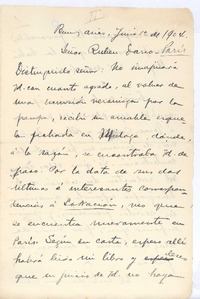 II
Buenos Aires, Junio 1º de 1904.
Señor Rubén Darío - París
Distinguido señor: No imaginará
Vd. con cuanto agrado, al volver de
una excursión veraniega por la
pampa, recibí su amable esquela
fechada en Málaga donde,
á la sazón, se encontraba Vd. de
paso. Por la data de sus dos
últimas é interesantes correspon-
dencias á La Nación, veo que
se encuentra nuevamente en
París. Según su carta, espero allí
habrá leido mi libro y
que su juicio de Vd. no haya